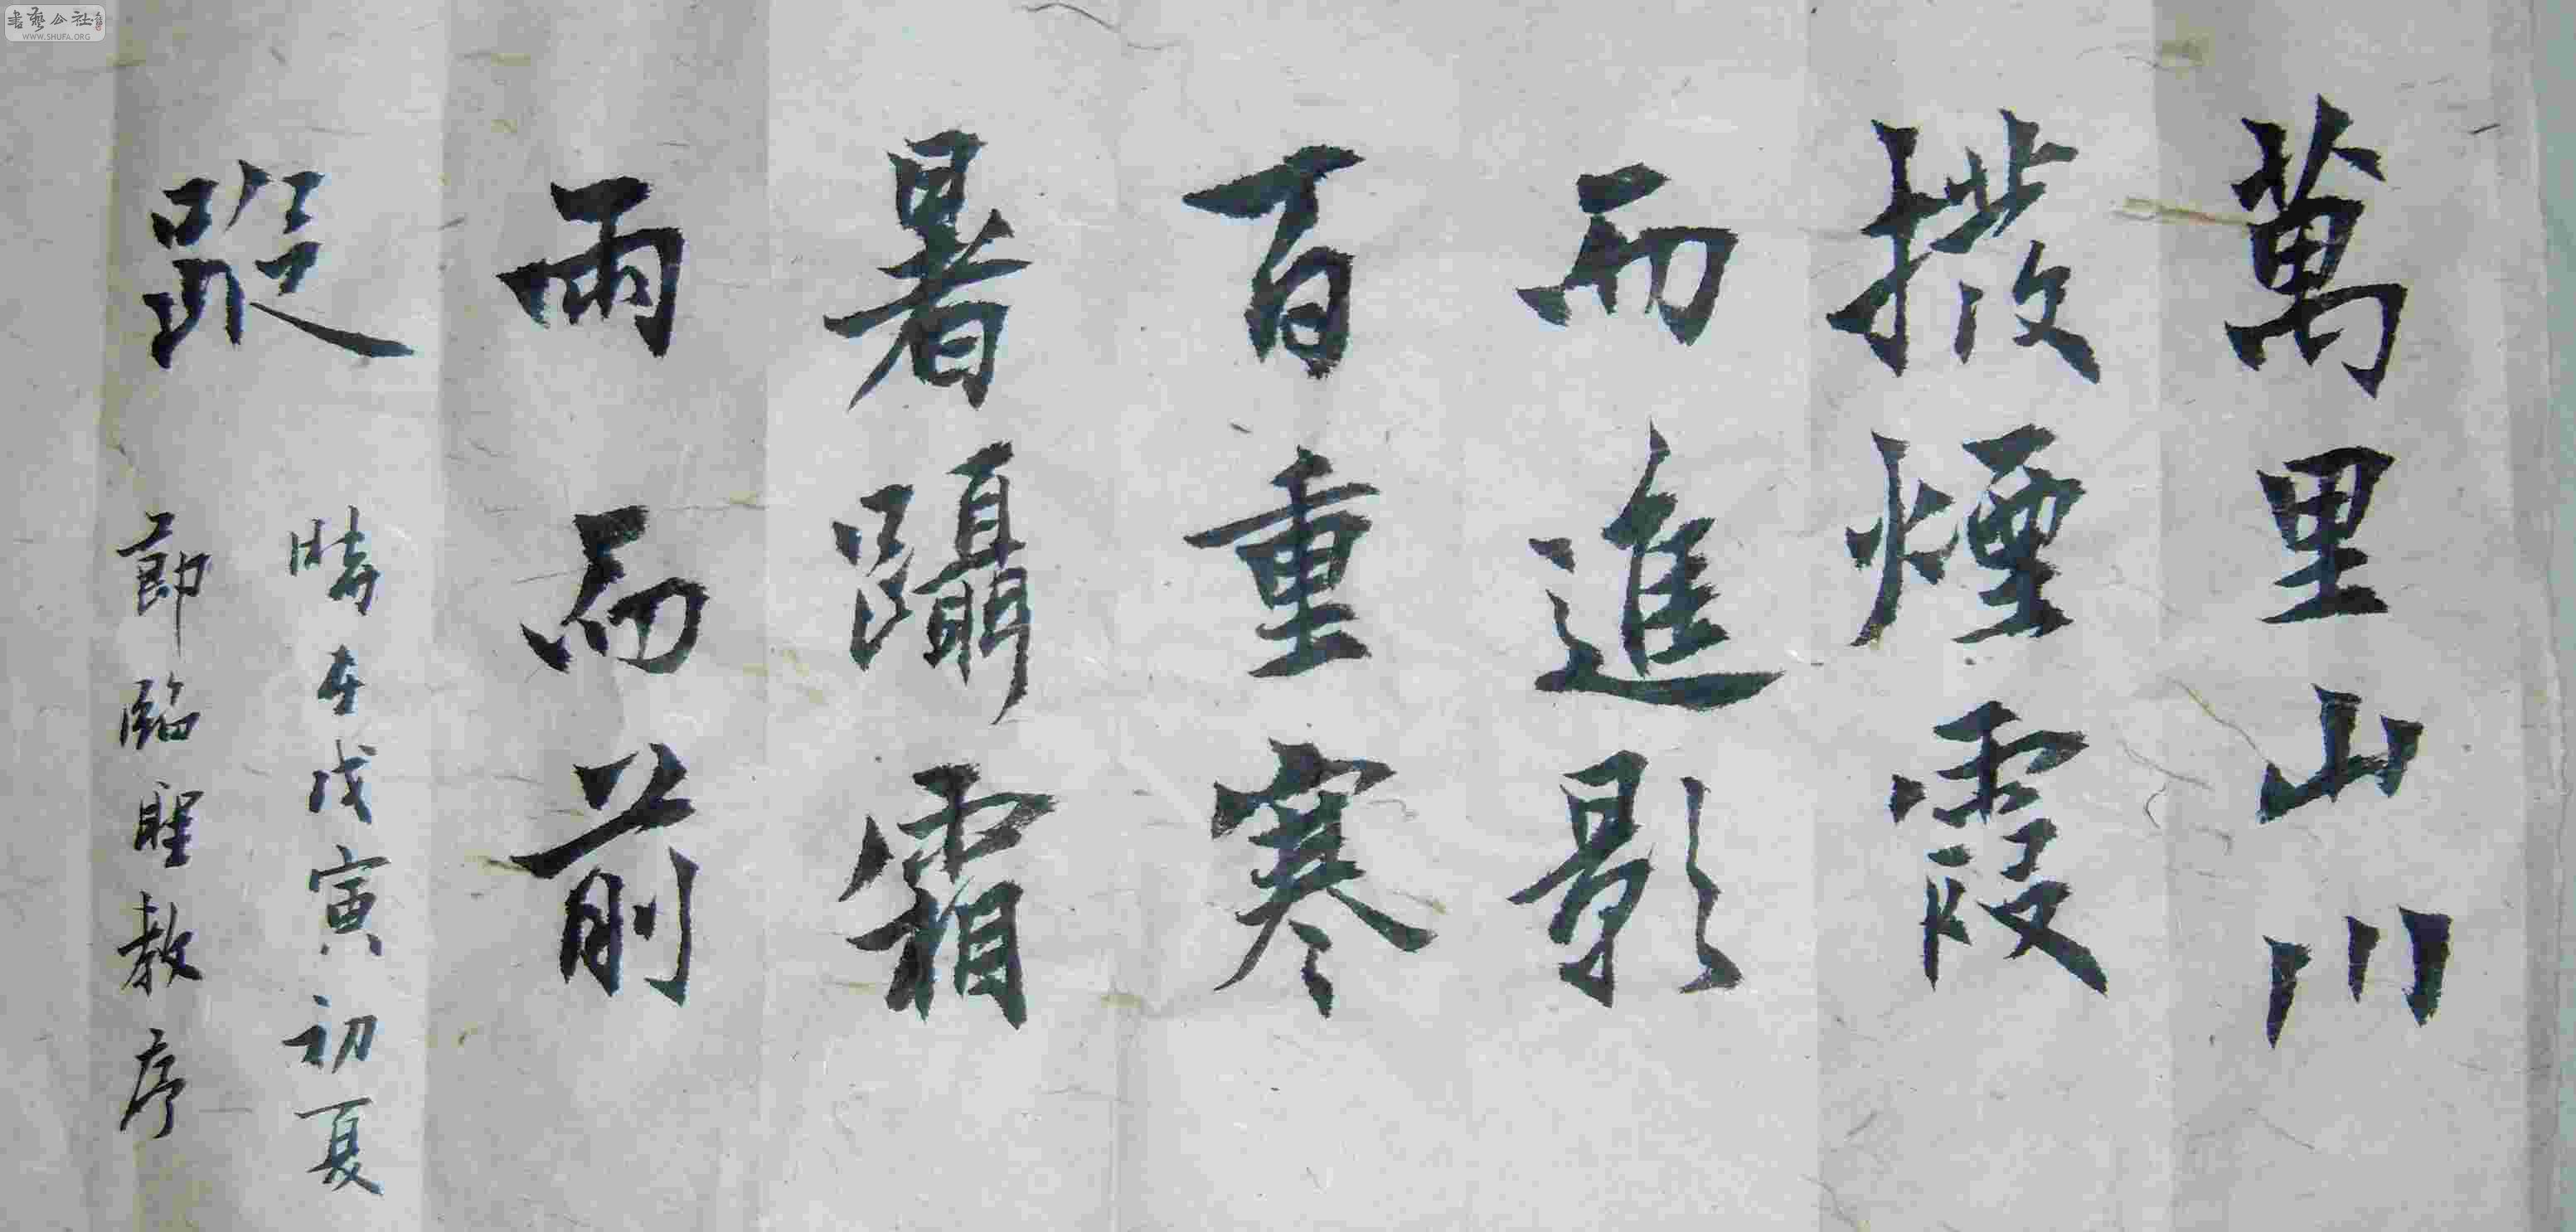 萬里山川
撥煙霞
而進影
百重寒
暑躡霜
雨而前
蹤
時在戊寅初夏
節臨聖教序
書藝公社
WWW.SHUFA.ORG